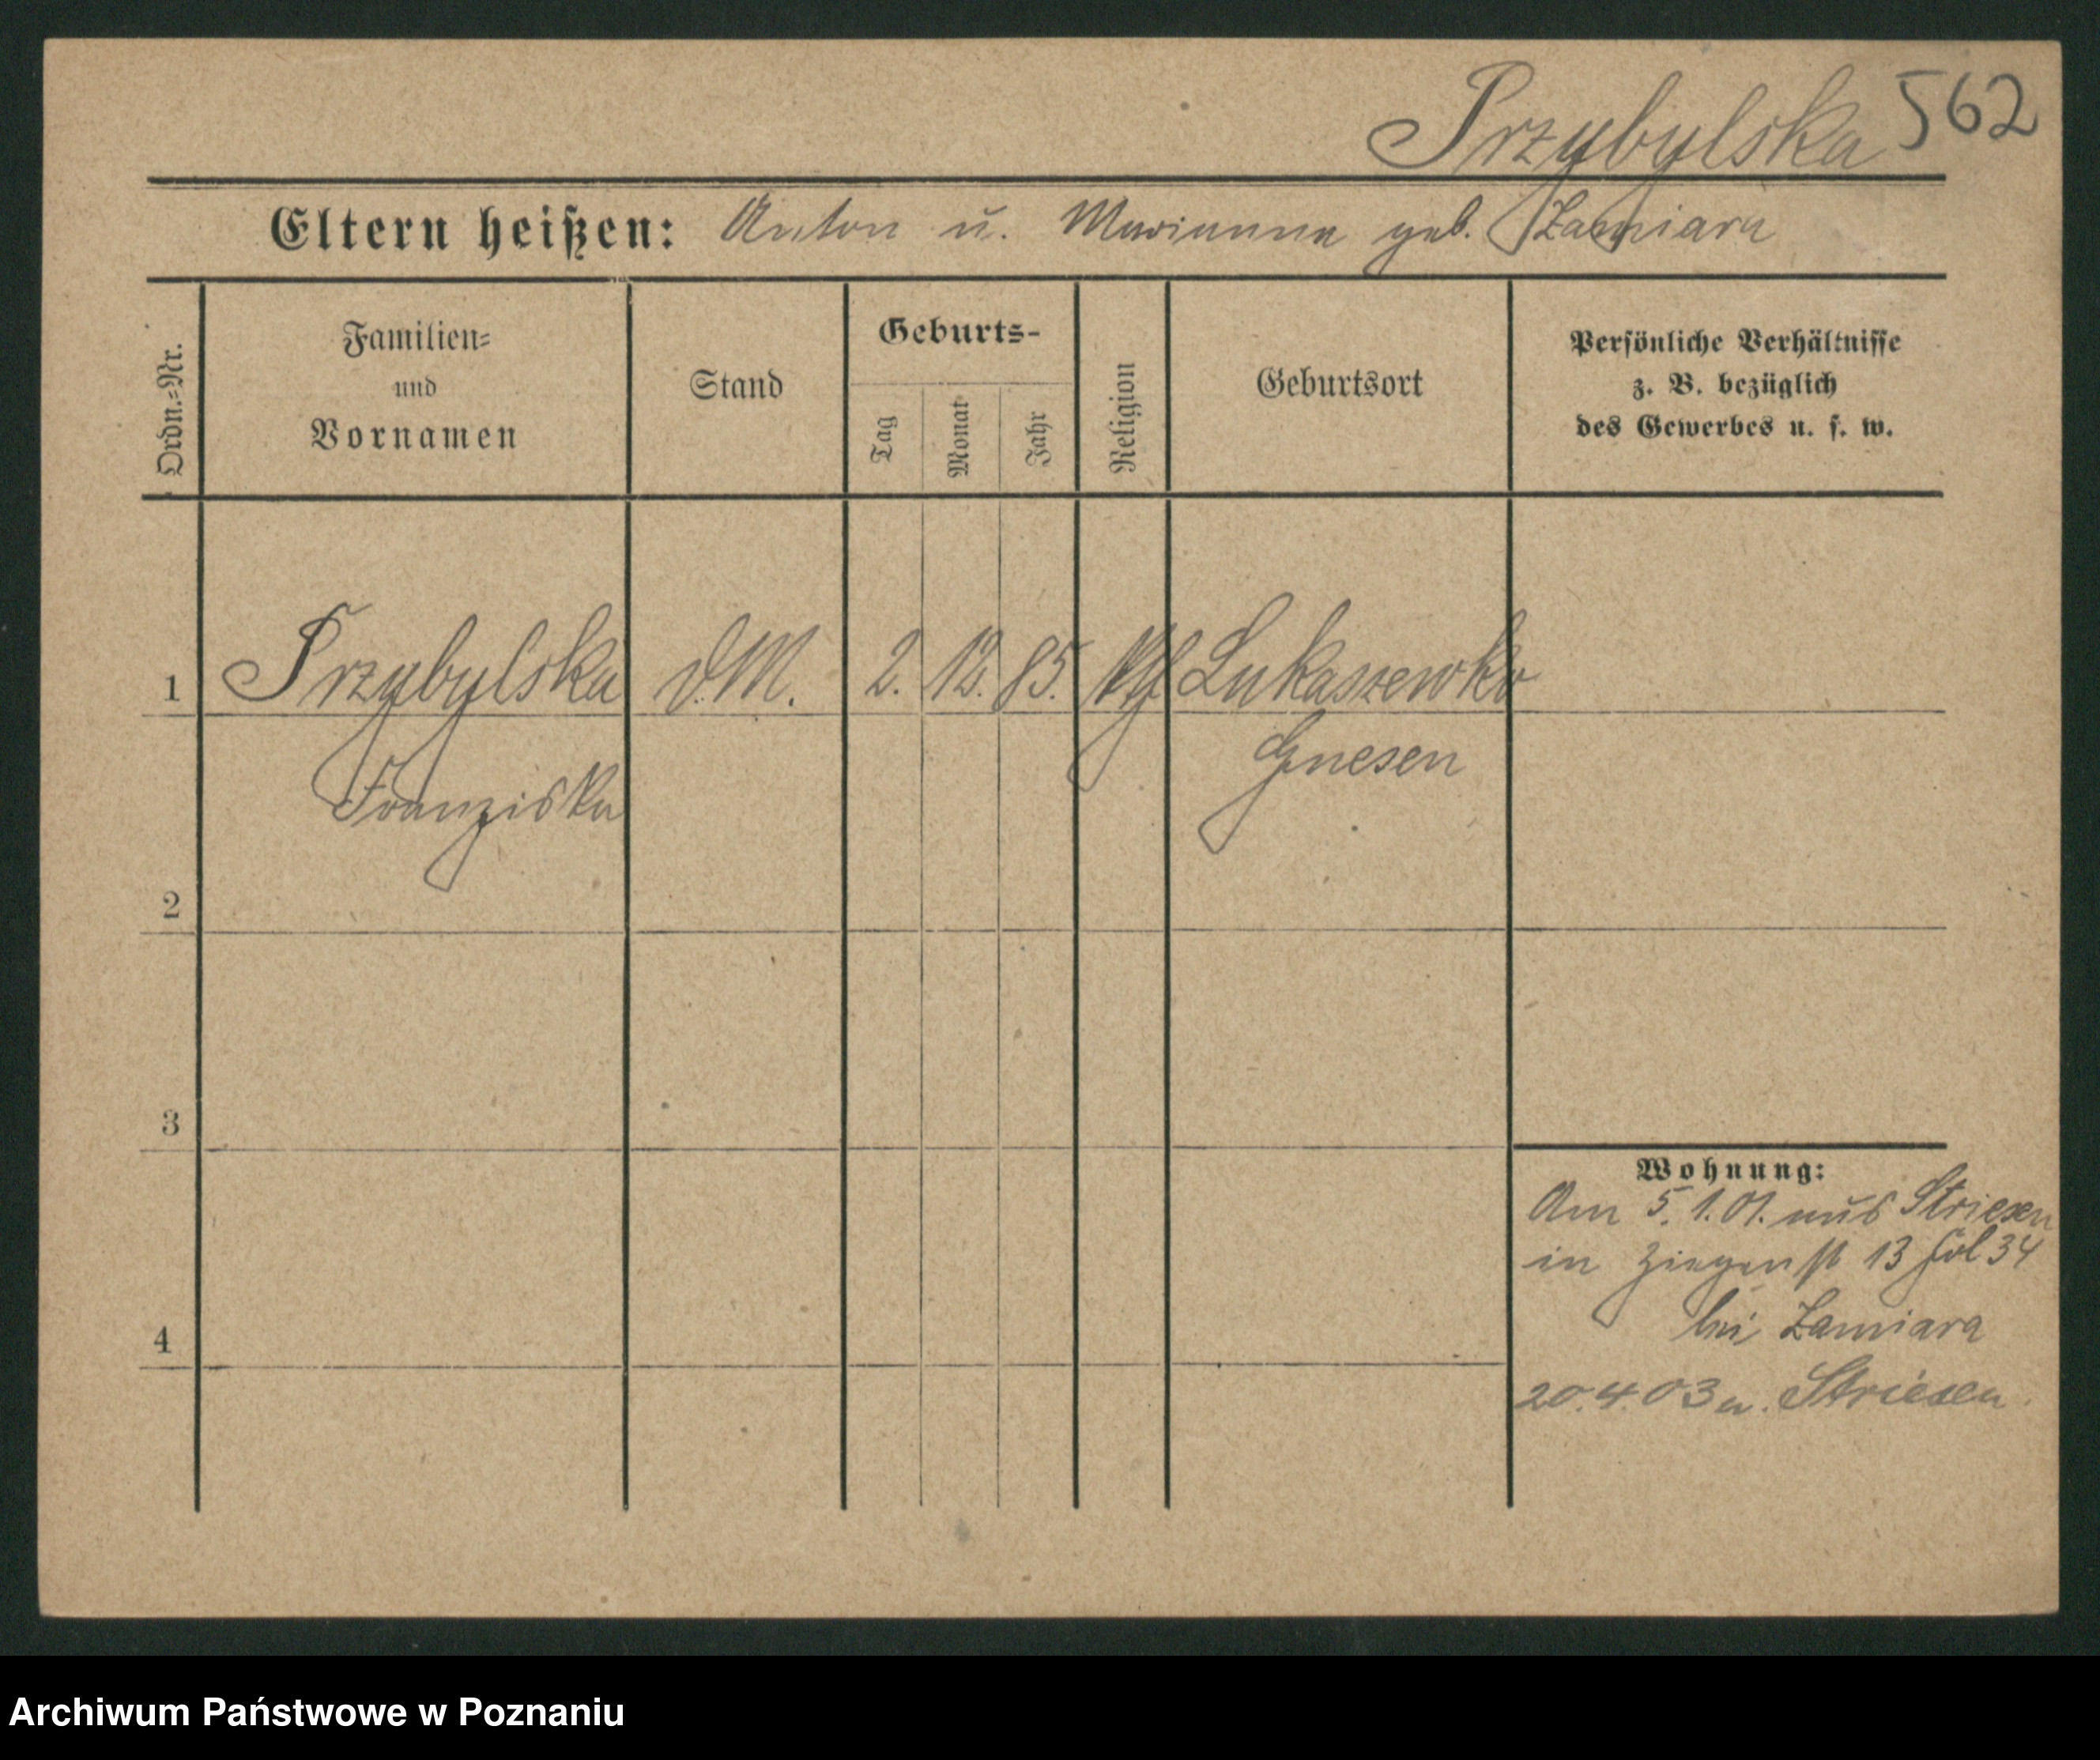 Przybylska 562
Eltern heißen: Anton u. Marianna geb. Zamiara
Ordn.-Nr.
Familien-
und
Vornamen
Stand
Geburts-
Tag
Monat
Jahr
Religion
Geburtsort
Persönliche Verhältnisse
z. B. bezüglich
des Gewerbes u. s. w.
1 Przybylska d. M. 2. 12. 85. Lukaszewko
Franziska
Gnesen
2
3
4
Wohnung:
Am 5. 1. 01. aus Striesen
in Ziegenstr 13 fol 34
bei Zamiara
20.4.03 n. Striesen
Archiwum Państwowe w Poznaniu